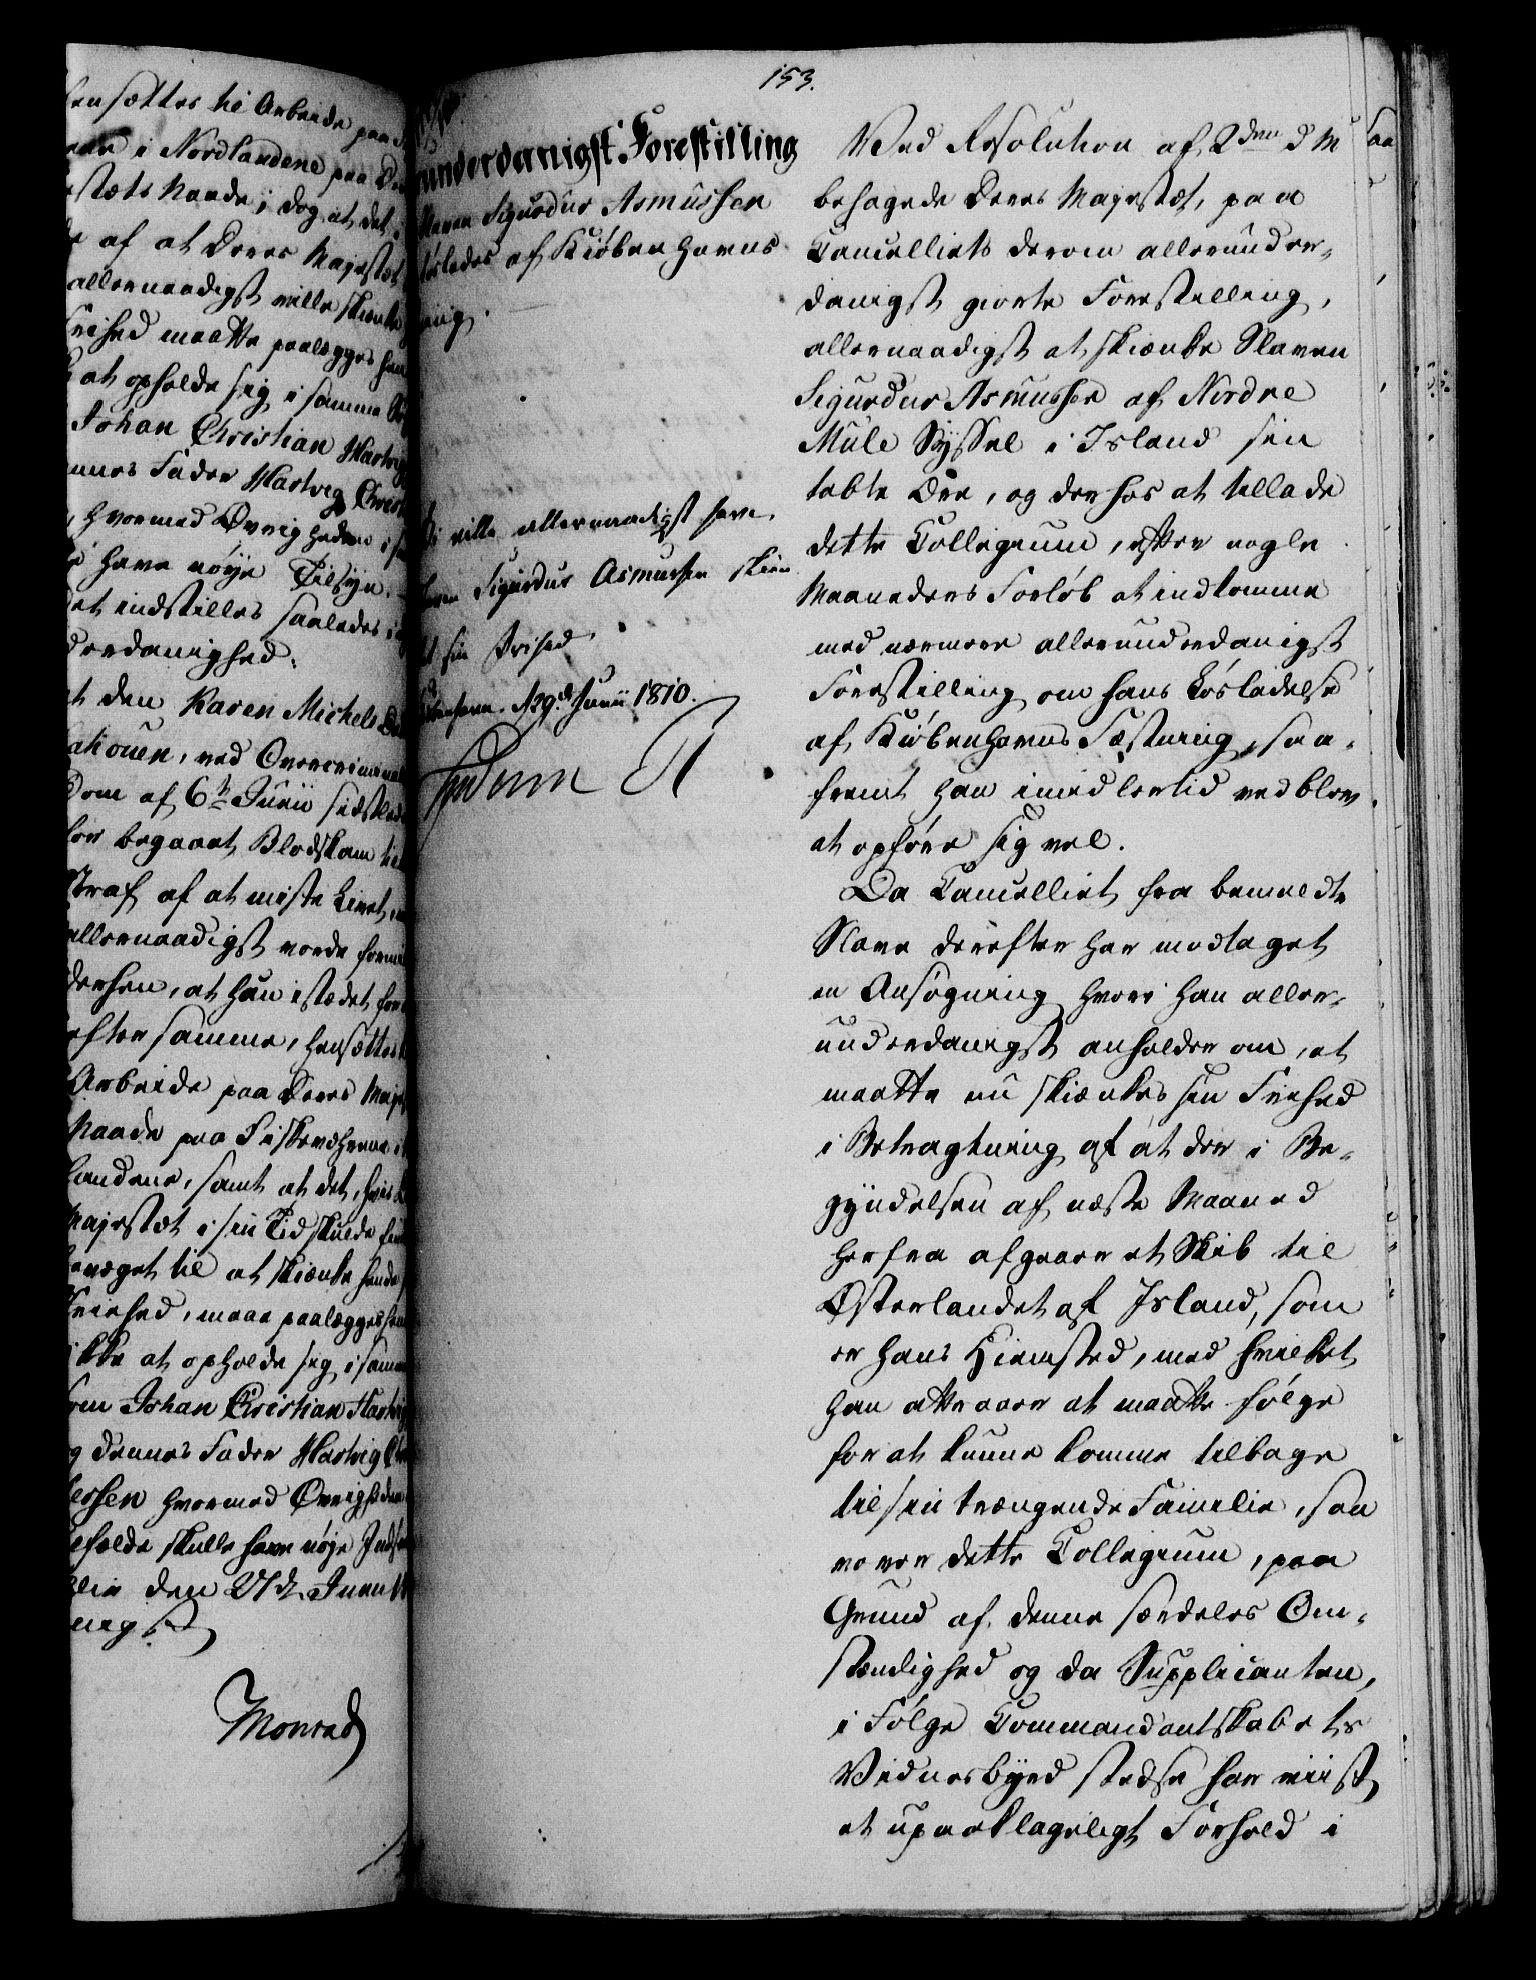 sættes til Arbeide paa
i Nordlandene paa
Naade; dog at det
af at Deres Majestæt
allernaadigst ville skienke
Frihed maatte paalægges
at opholde sig i samme
Johan Christian Hartvig
Fader Hartvig
hvormed Øvrigheden
have nöye Tilsyn.
indstilles saaledes
den Karen Michels
ved Overcriminal
Dom af 6te Junii sidstleden
for begaaet Blodskam
Straf af at miste Livet,
allernaadigst vorde
derhen, at hun istædet for
efter samme, hensættes
Arbeide paa Deres
Naade paa Fiskeværene
samt at det, hvis
Majestæt i sin Tid skulde
bevæget til at skienke hende
Friehed, maae paalægges
ikke at opholde sig i samme
som Johan Christian Hartvig
og dennes Fader Hartvig
hvormed Øvrigheden
skulle have nöye
den 27de Junii
Monrad
153.
underdanigst Forestilling
Slaven Sigurdur Asmussen
löslades af Kiöbenhavns
Vi ville allernaadigst have
Slaven Sigurdur Asmussen
sin Frihed
29de Junii 1810.
Frederik R
Ved Resolution af 2den d M
behagede Deres Majestæt, paa
Cancelliets derom allerunder-
danigst giorte Forestilling,
allernaadigst at skienke Slaven
Sigurdur Asmussen af Nordre
Mule Syssel i Island sin
tabte Ære, og derhos at tillade
dette Collegium, efter nogle
Maaneders Forlöb at indkomme
med nærmere allerunderdanigst
Forestilling om hans Löslladelse
af Kiöbenhavns Fæstning, saa-
fremt han imidlertid vedblev
at opföre sig vel.
Da Cancelliet fra bemeldte
Slave derefter har modtaget
en Ansögning hvori han aller-
underdanigst anholder om, at
maatte nu skienkes sin Friehed
i Betragtning af at der i Be-
gyndelsen af næste Maaned
herfra afgaaer et Skib til
Østerlandet af Island, som
er hans Hiemsted, med hvilket
han attraaer at maatte fölge
for at kunne komme tilbage
til sin trængende Familie, saa
vover dette Collegium, paa
Grund af denne særdeles Om-
stændighed og da Supplicanten,
i Fölge Commandantskabets
Vidnesbyrd stedse har viist
et upaaklageligt Forhold i
saa